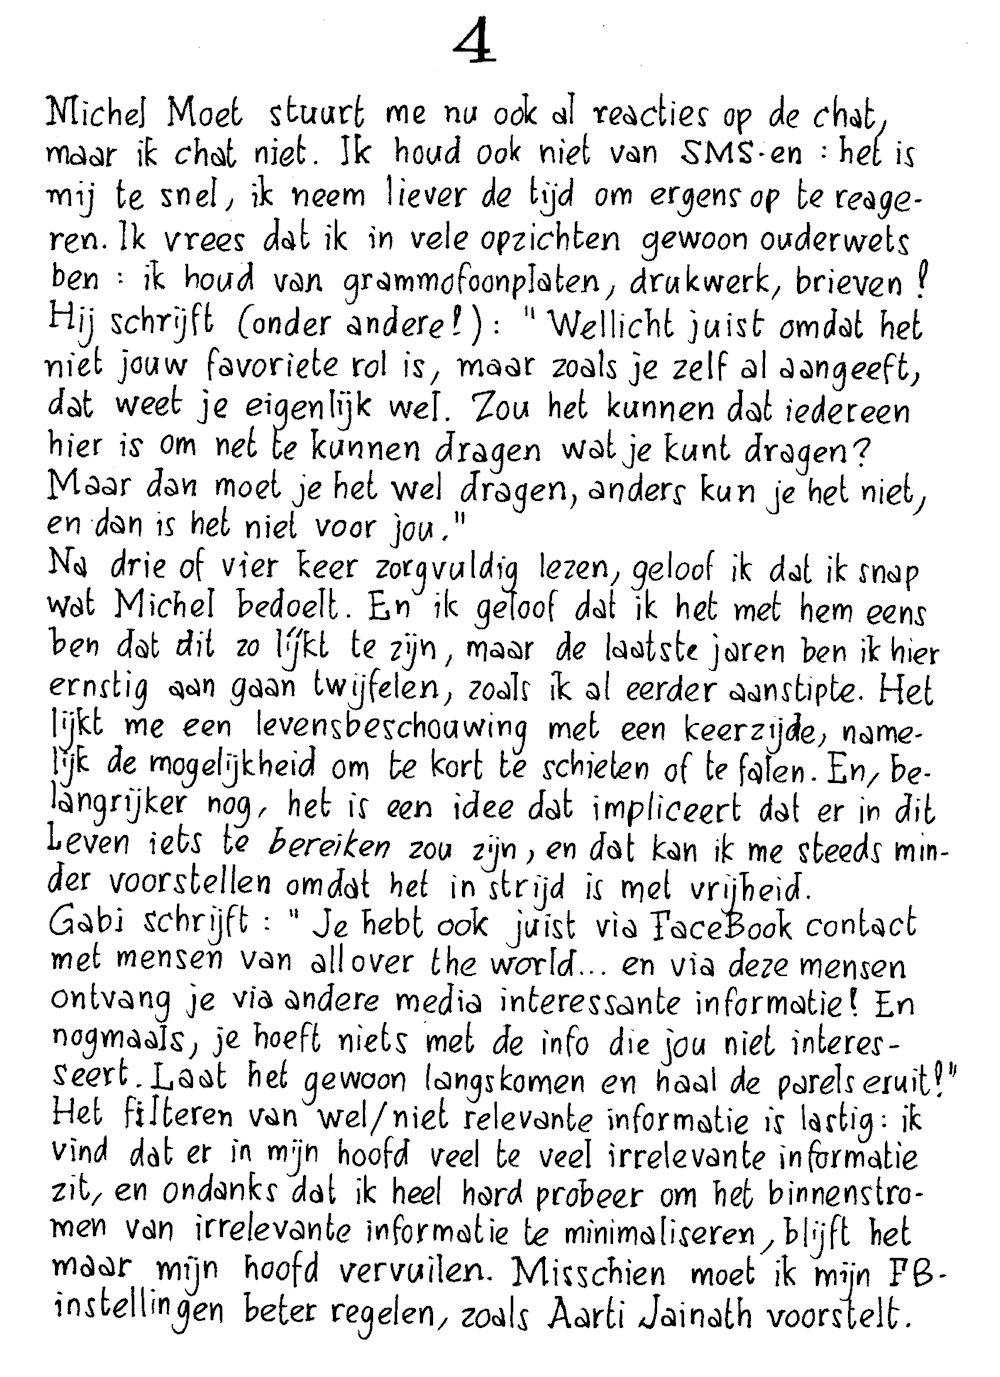 4
Michel Moet stuurt me nu ook al reacties op de chat,
maar ik chat niet. Ik houd ook niet van SMS-en : het is
mij te snel, ik neem liever de tijd om ergens op te reage-
ren. Ik vrees dat ik in vele opzichten gewoon ouderwets
ben : ik houd van grammofoonplaten, drukwerk, brieven !
Hij schrijft (onder andere!) : "Wellicht juist omdat het
niet jouw favoriete rol is, maar zoals je zelf al aangeeft,
dat weet je eigenlijk wel. Zou het kunnen dat iedereen
hier is om net te kunnen dragen wat je kunt dragen?
Maar dan moet je het wel dragen, anders kun je het niet,
en dan is het niet voor jou."
Na drie of vier keer zorgvuldig lezen, geloof ik dat ik snap
wat Michel bedoelt. En ik geloof dat ik het met hem eens
ben dat dit zo lijkt te zijn, maar de laatste jaren ben ik hier
ernstig aan gaan twijfelen, zoals ik al eerder aanstipte. Het
lijkt me een levensbeschouwing met een keerzijde, name-
lijk de mogelijkheid om te kort te schieten of te falen. En, be-
langrijker nog, het is een idee dat impliceert dat er in dit
Leven iets te bereiken zou zijn, en dat kan ik me steeds min-
der voorstellen omdat het in strijd is met vrijheid.
Gabi schrijft : "Je hebt ook juist via FaceBook contact
met mensen van all over the world... en via deze mensen
ontvang je via andere media interessante informatie! En
nogmaals, je hoeft niets met de info die jou niet interes-
seert. Laat het gewoon langskomen en haal de parels eruit!"
Het filteren van wel/niet relevante informatie is lastig: ik
vind dat er in mijn hoofd veel te veel irrelevante informatie
zit, en ondanks dat ik heel hard probeer om het binnenstro-
men van irrelevante informatie te minimaliseren, blijft het
maar mijn hoofd vervuilen. Misschien moet ik mijn FB-
instellingen beter regelen, zoals Aarti Jainath voorstelt.